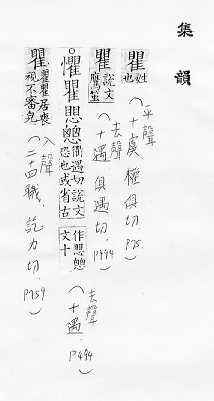 集韻
瞿姓也
(平聲
十虞
權俱切
P75.)
瞿說文鷹隼
(去聲
十遇
俱遇切
P494)
○懼瞿思愳衢遇切說文恐也或省古作思愳文十
(去聲
十遇
P494)
瞿瞿瞿居喪視不審皃
(入聲
二十四職
訖力切
P759)